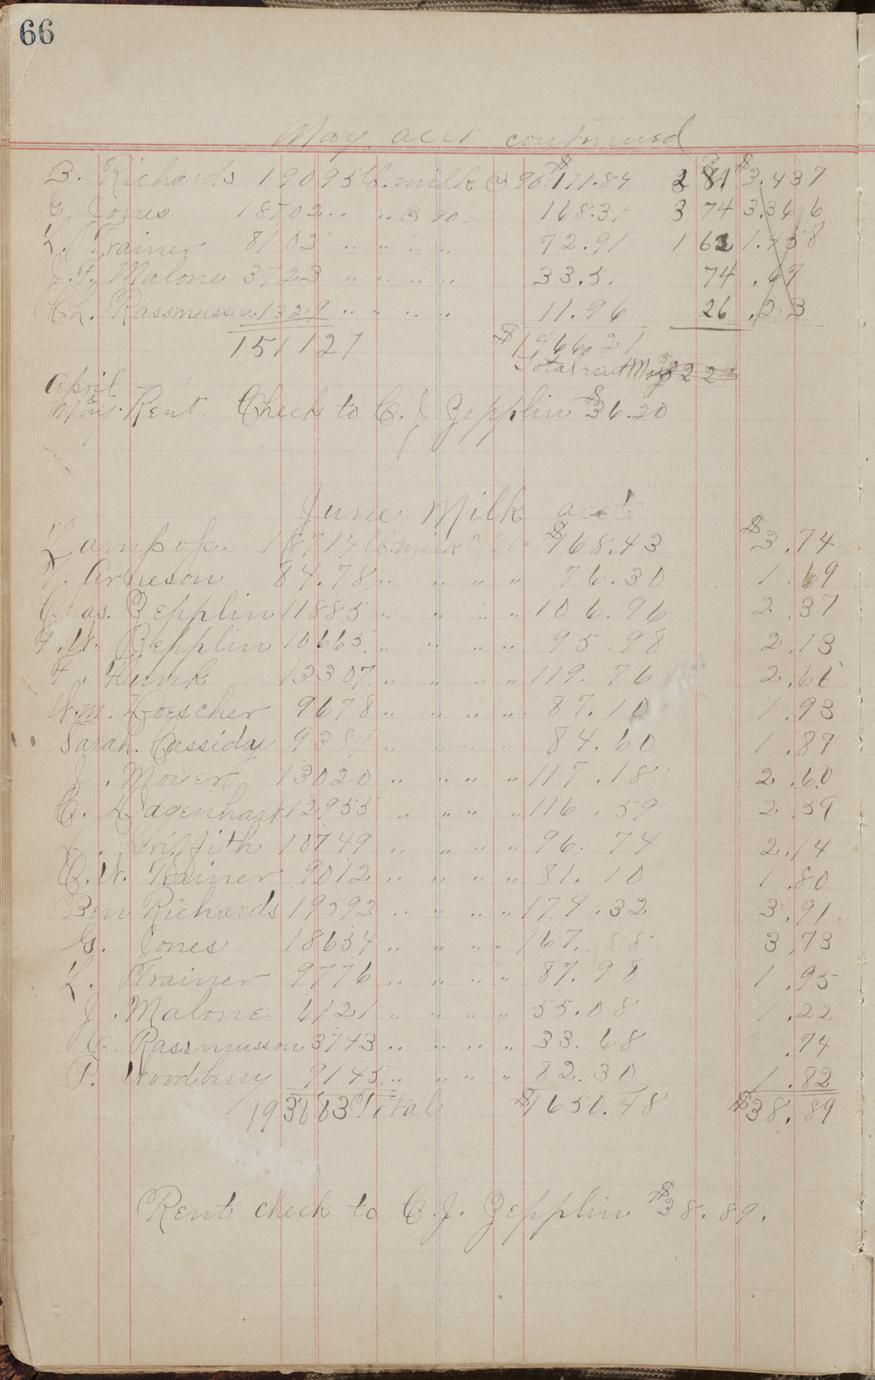 66
May acct continued
B. Richards 19095 C. milk @ 90 $171.84 $3.437
G. Jones 18702 .. .. @ 90 168.31 3 74 3.366
L. Trainer 8102 .. .. .. 72.91 1 62 1.458
J.F. Malone 3723 .. .. .. 33.5 74 .67
Ch. Rassmussen 1329 .. .. .. 11.96 26 .23
151127 $1966.21
Total rent May
April
May. Rent. Check to C. J. Zepplin $36.20
June Milk acct
Lampop. 18714 C. milk $168.43 $3.74
Arneson 84.78 .. .. .. 76.30 1.69
Chas. Zepplin 11885 .. .. .. 106.96 2.37
F.W. Zepplin 10665 .. .. .. 95.98 2.13
F. Hunk 13307 .. .. .. 119.76 2.66
Wm. Loescher 9678 .. .. .. 87.10 1.93
Sarah Cassiday .. .. .. 84.60 1.87
J. Moyer 13020 .. .. .. 117.18 2.60
C. Dagenhart 12955 .. .. .. 116.59 2.59
Griffith 10749 .. .. .. 96.74 2.14
C.W. Trainer 9012 .. .. .. 81.10 1.80
Ben Richards 19592 .. .. .. 174.32 3.91
G. Jones 18654 .. .. .. 167.88 3.73
L. Trainer 9776 .. .. .. 87.98 1.95
J. Malone 6121 .. .. .. 55.08 1.22
C. Rassmusson 3743 .. .. .. 33.68 .74
P. Woodberry 9145 .. .. .. 82.30 1.82
Total $1650.48 $38.89
Rent check to C.J. Zepplin $38.89.